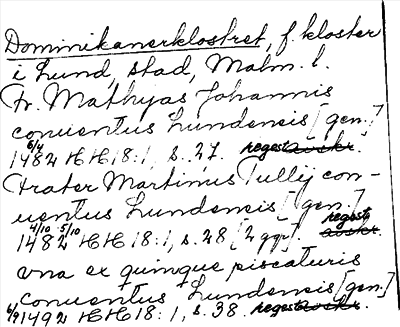 Dominikanerklostret, f. kloster
i Lund, stad, Malm. l.
Fr. Mathyas Johannis
conuentus Lundensis [gen.]
6/4 1482 HH 18:1, s. 27. regest avskr.
Frater Martinus Tullij con-
uentus Lundensis [gen.]
4/10 5/10 1482 HH 18:1, s. 28 [2 ggr]. regest avskr.
una ex quinque piscaturis
conuentus Lundensis [gen.]
1492 HH 18:1, s. 38. regest avskr.